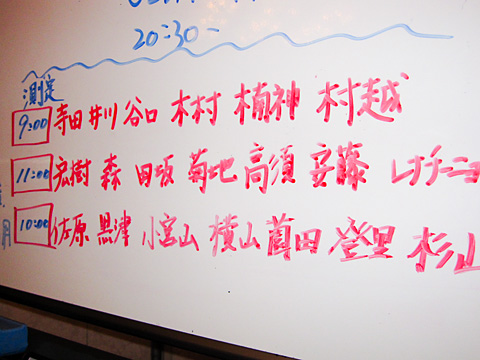 20:30-
測定
9:00 寺田 井川 谷口 木村 楠神 村越
11:00 宏樹 森 田坂 菊地 高須 安藤 レナチーニョ
10:00 佐原 黒津 小宮山 横山 薗田 登里 杉山
月